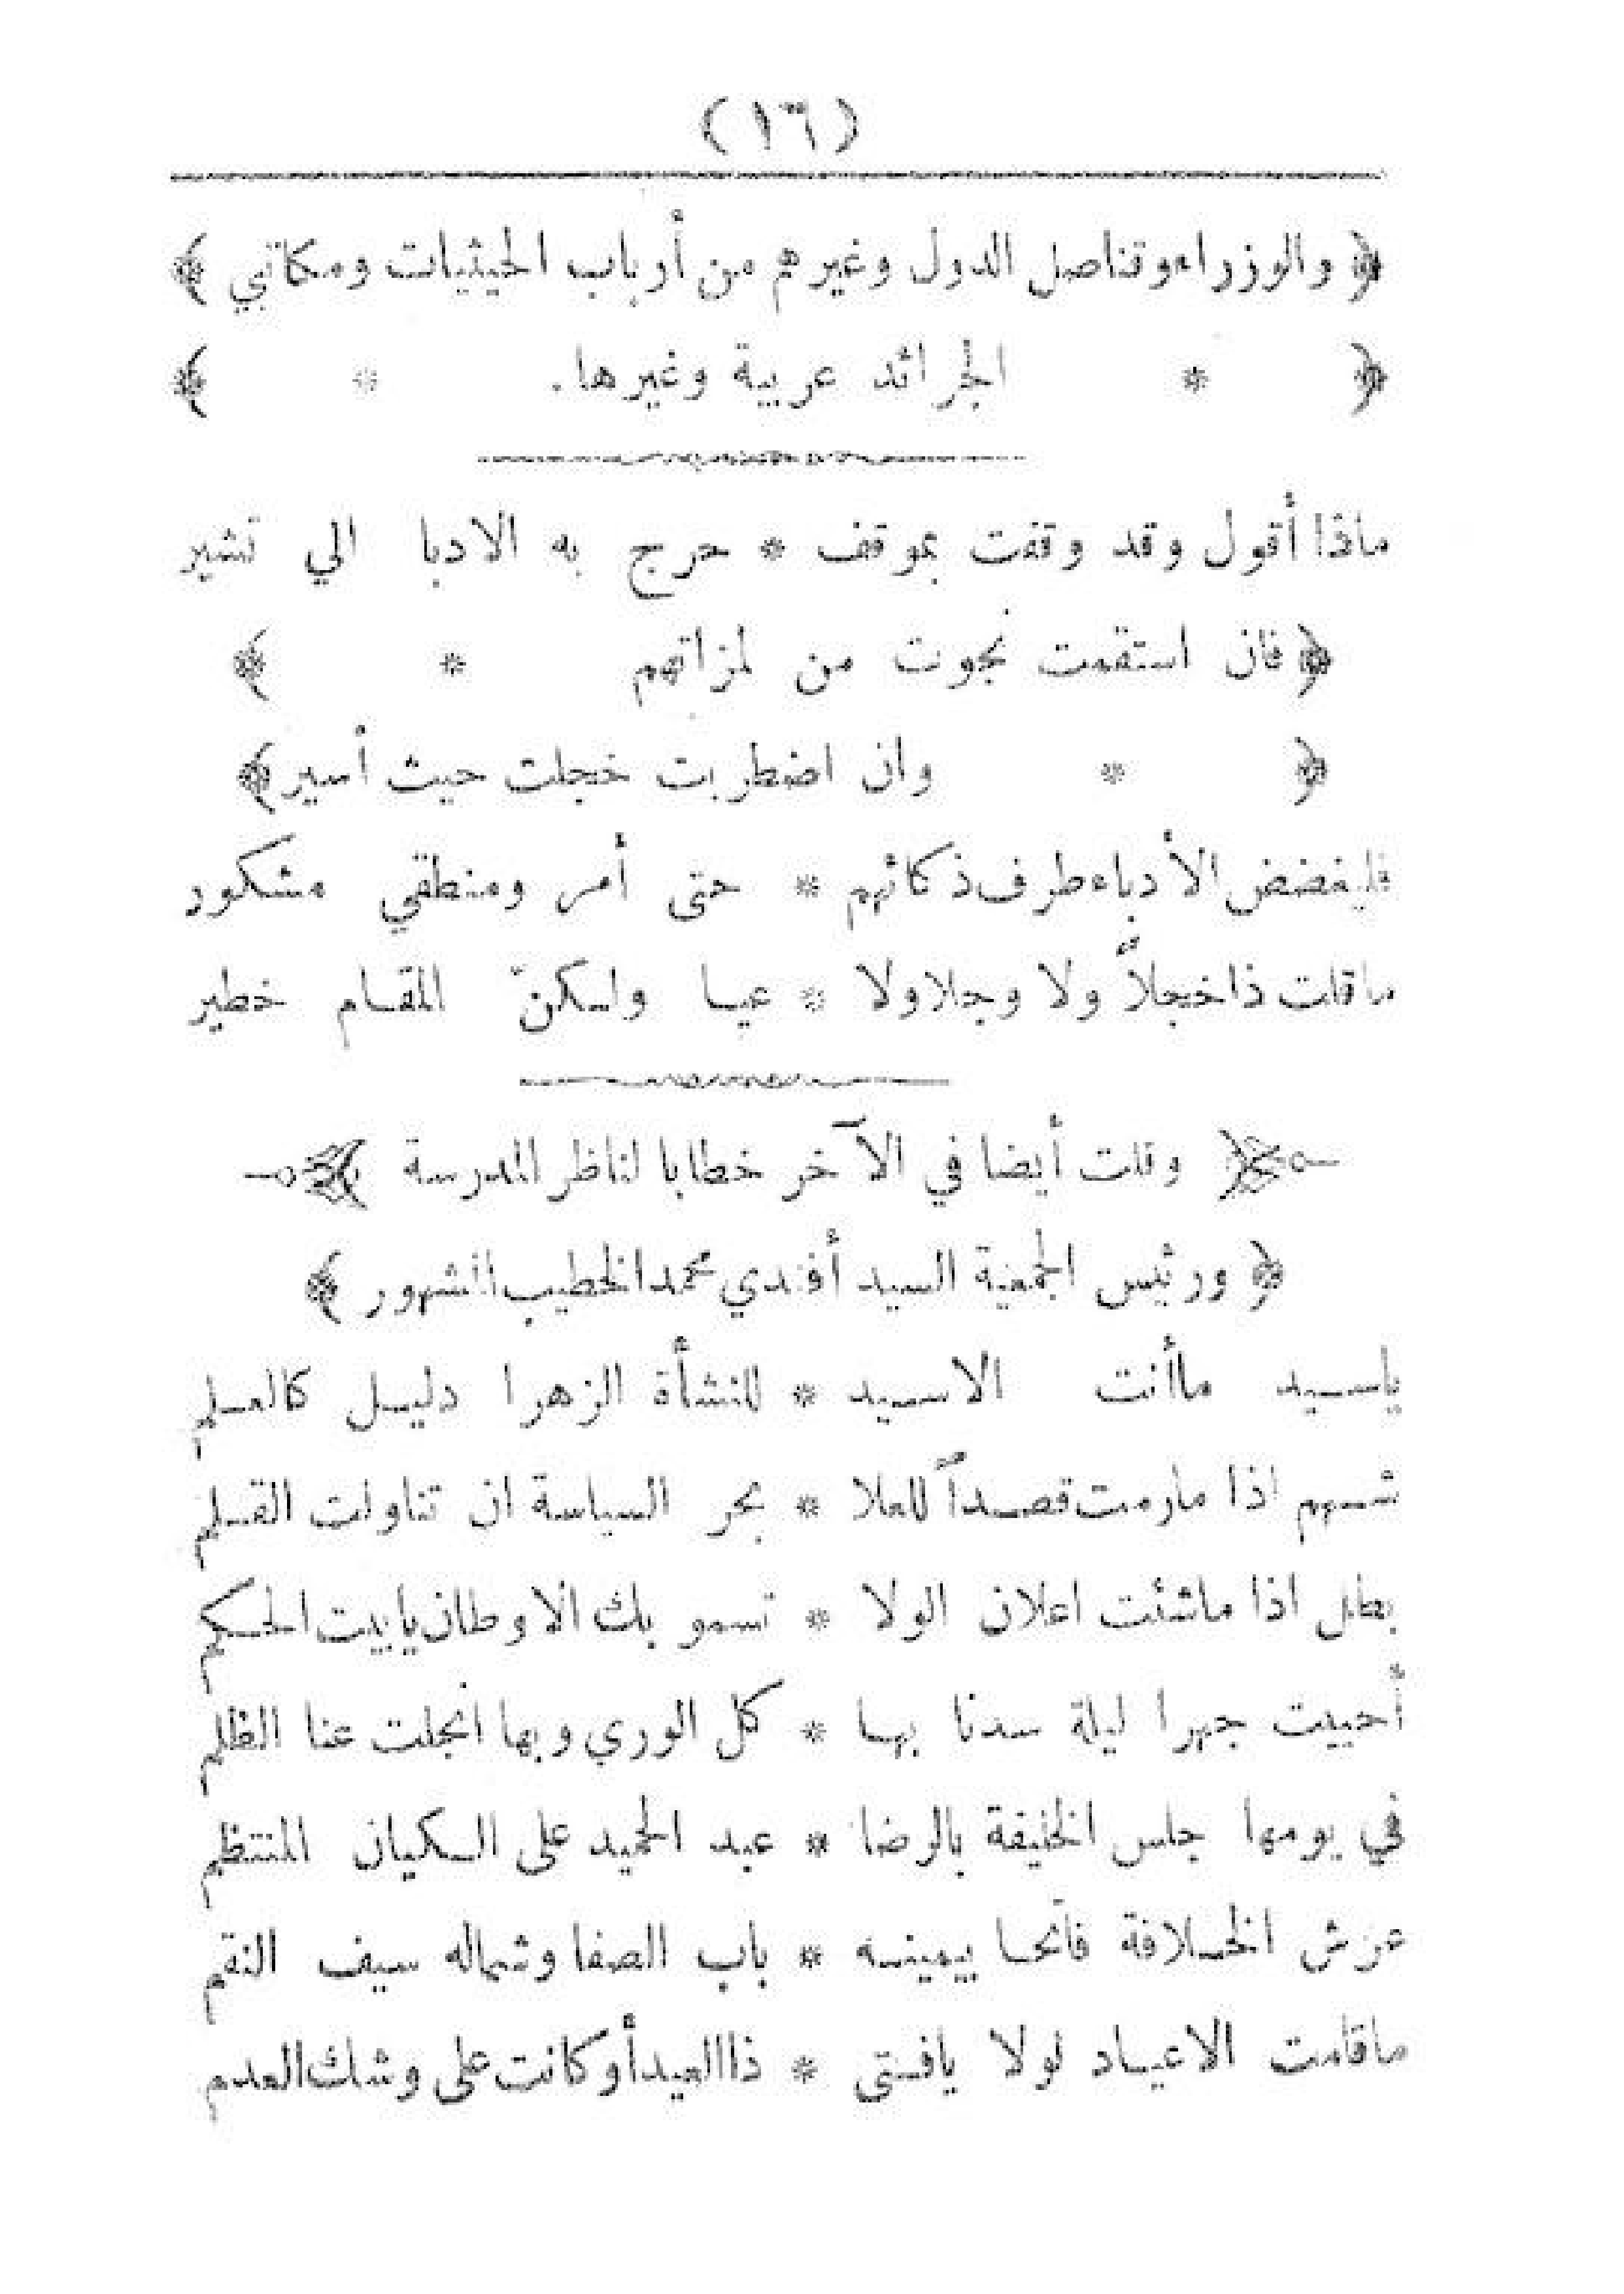 (١٦)
﴿ والوزراء وقناصل الدول وغيرهم من أرباب الحيثيات ومكاتبي ﴾
﴿ * الجرائد عربية وغيرها. * ﴾
ماذا أقول وقد وقفت بموقف * حرج به الادبا الي تشير
﴿ فان استقمت نجوت من لمزاتهم * ﴾
﴿ * وان اضطربت خجلت حيث أسير ﴾
فليغضض الأدباء طرف ذكائهم * حتى أمر ومنطقي مشكور
ما قلت ذا خجلاً ولا وجلا ولا * عيا ولكنّ المقام خطير
﴿ وقلت أيضا في الآخر خطابا لناظر المدرسة ﴾
﴿ ورئيس الجمعية السيد أفندي محمد الخطيب المشهور ﴾
ياسيد ماأنت الاسيد * للنشأة الزهرا دليل كالعلم
شهم اذا مارمت قصداً للعلا * بحر السياسة ان تناولت القلم
بطل اذا ماشئت اعلان الولا * تسمو بك الاوطان يابيت الحكم
أحييت جهرا ليلة سدنا بها * كل الوري وبها انجلت عنا الظلم
في يومها جلس الخليفة بالرضا * عبد الحميد على الكيان المنتظم
عرش الخلافة فاتحا بيمينه * باب الصفا وشماله سيف النقم
ماقامت الاعياد لولا يافتى * ذا العيد أو كانت على وشك العدم